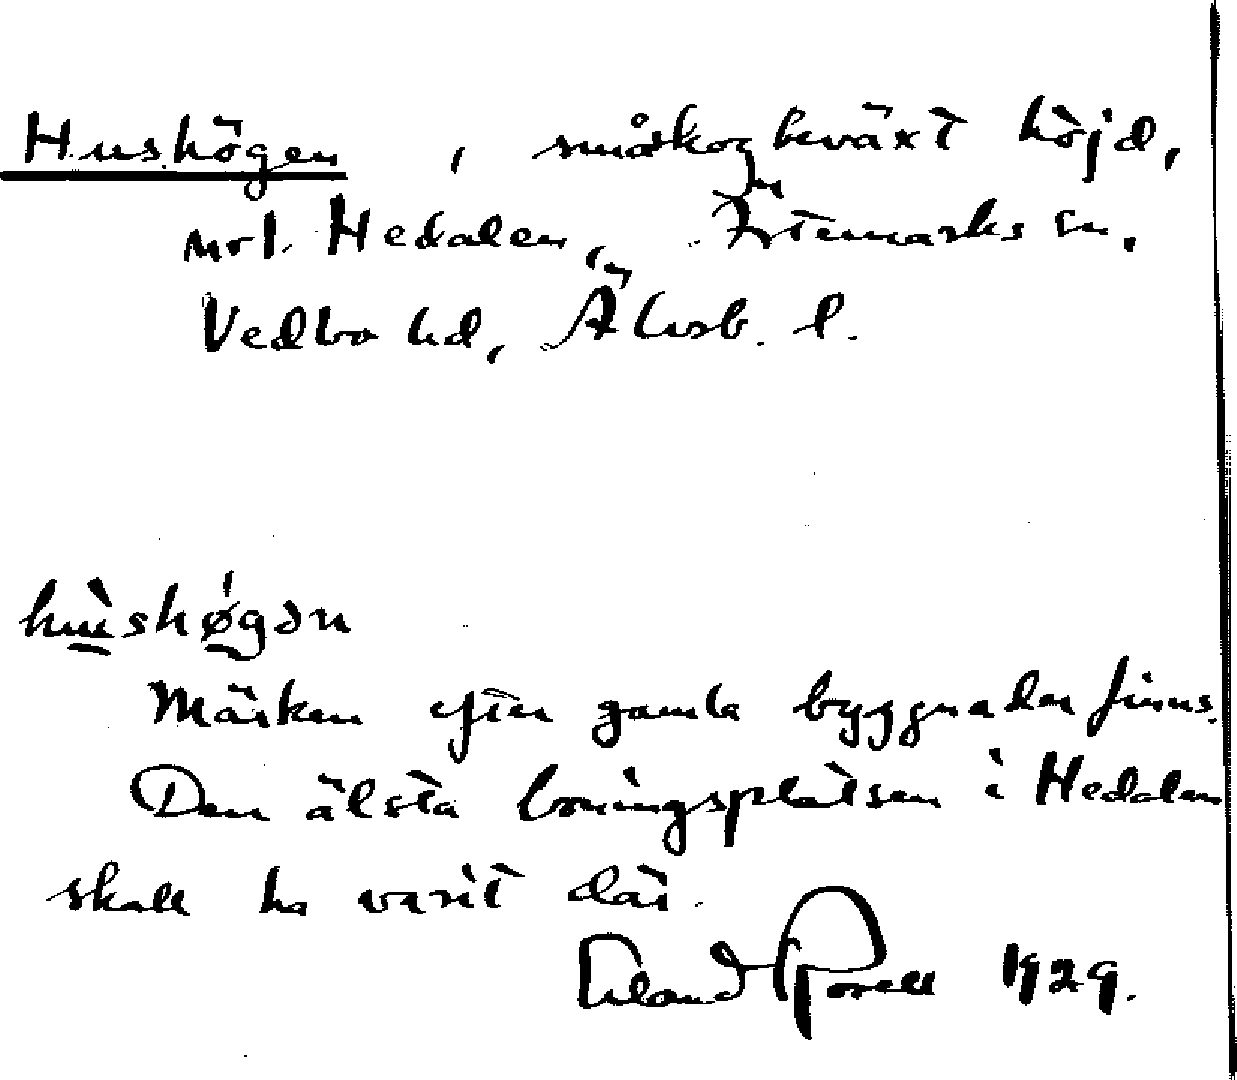 Hushögen, småskogbeväxt höjd,
nrl. Hedalen, Ärtemarks sn,
Vedbo hd, Älvsb. l.
hùshø̀gən
Märken efter gamla byggnader finns.
Den älsta boningsplatsen i Hedalen
skall ha varit där.
Erland Rosell 1929.